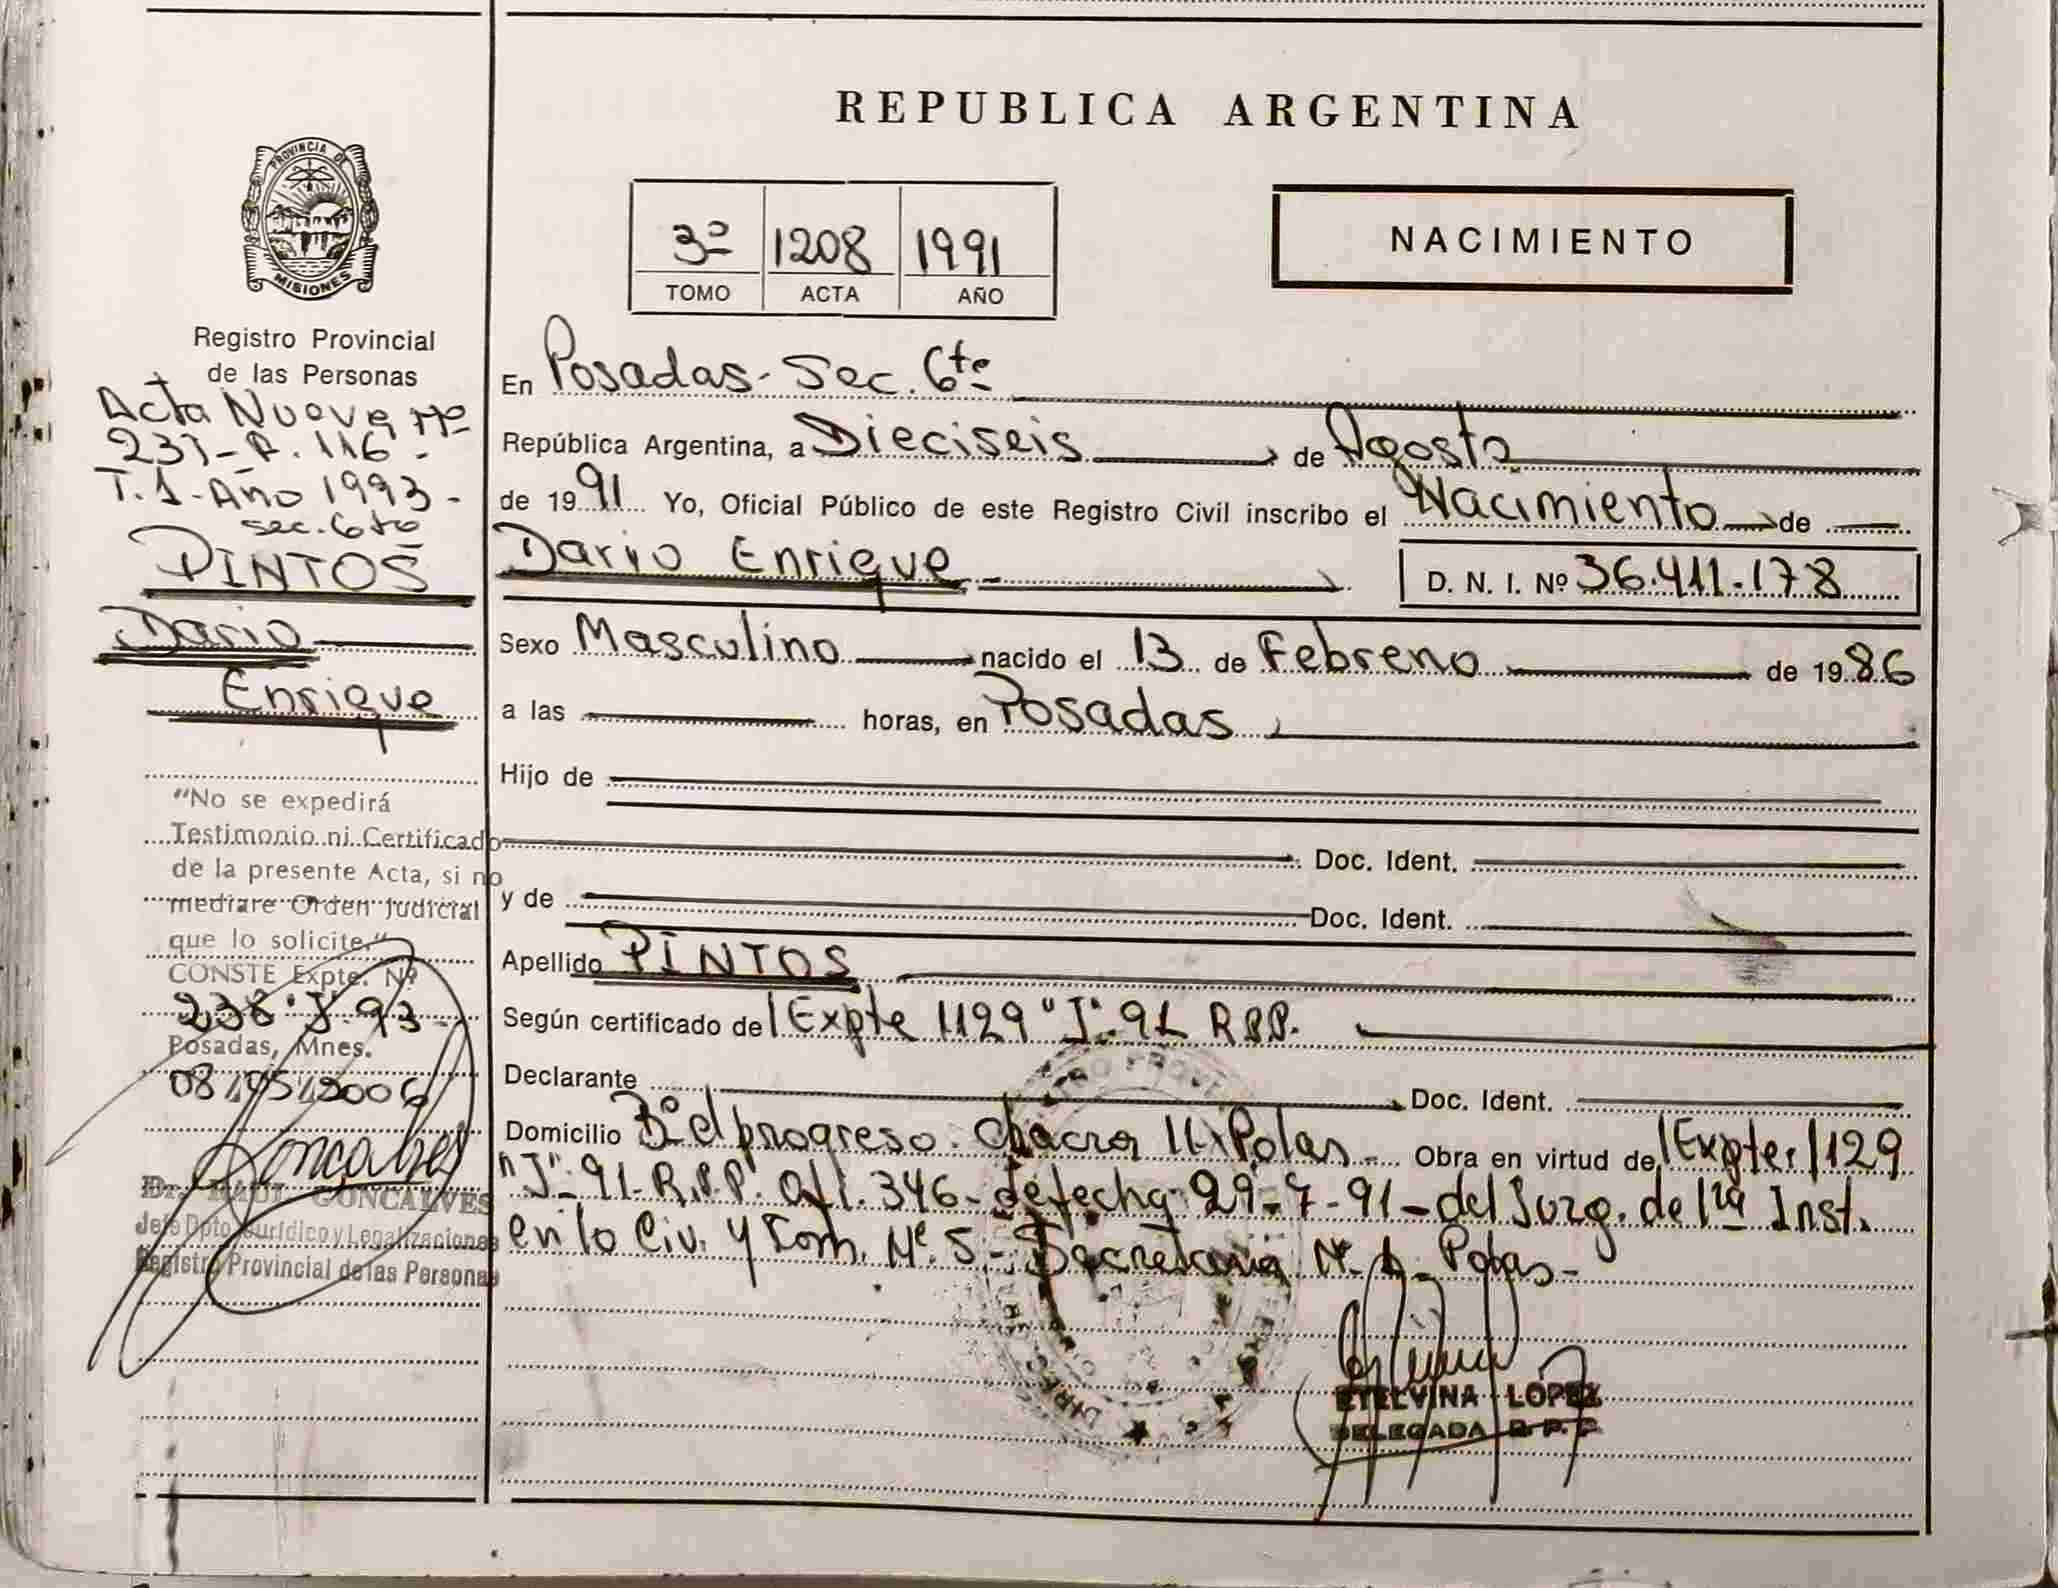 REPUBLICA ARGENTINA
PROVINCIA DE
MISIONES
3º 1208 1991
TOMO ACTA AÑO
NACIMIENTO
Registro Provincial
de las Personas
Acta Nueva Nº
231-F. 116-
T. 1-Año 1993-
sec. 6ta
PINTOS
Dario
Enrique
"No se expedirá
Testimonio ni Certificado
de la presente Acta, si no
mediare Orden Judicial
que lo solicite."
CONSTE Expte. Nº
238 "J" 93-
Posadas, Mnes.
08/05/2006
Dr. RAUL GONCALVES
Jefe Dpto. Jurídico y Legalizaciones
Registro Provincial de las Personas
En Posadas- Sec. 6ta
República Argentina, a Dieciseis de Agosto
de 1991 Yo, Oficial Público de este Registro Civil inscribo el Nacimiento de
Dario Enrique - D. N. I. Nº 36.411.178
Sexo Masculino nacido el 13 de Febrero de 1986
a las horas, en Posadas
Hijo de
Doc. Ident.
y de Doc. Ident.
Apellido PINTOS
Según certificado de Expte 1129 "J". 91 R.P.P.
Declarante Doc. Ident.
Domicilio Bº el progreso. Chacra Posas- Obra en virtud de Expte. 1129
"J"-91-R.P.P. Of. 346- de fecha 29-7-91- del Juzg. de 1ra Inst.
en lo Civ. y Com. Nº 5- Secretaria Nº 1- Posas-
ETELVINA LOPEZ
DELEGADA R. P. P.